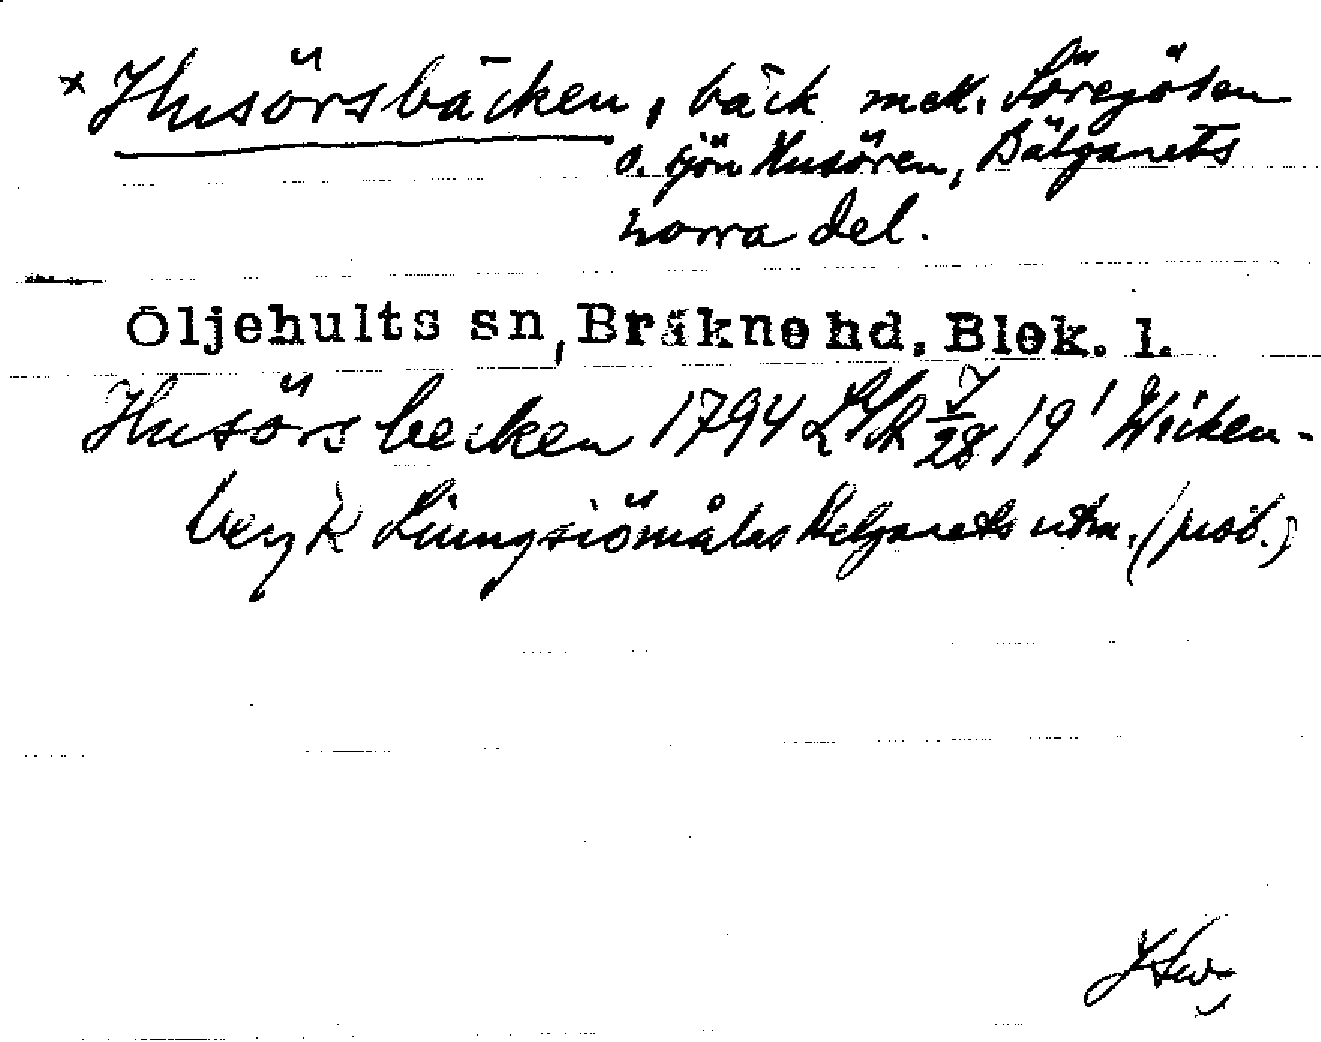 × Husörsbäcken, bäck mell. Söregölen
o. sjön Husören, Bälganets
norra del.
Öljehults sn, Bräkne hd. Blek. l.
Husörs becken 1794 LSA 7/28 19¹ Wieken-
berg K Liungsiömålas Helganets utm. (prob.)